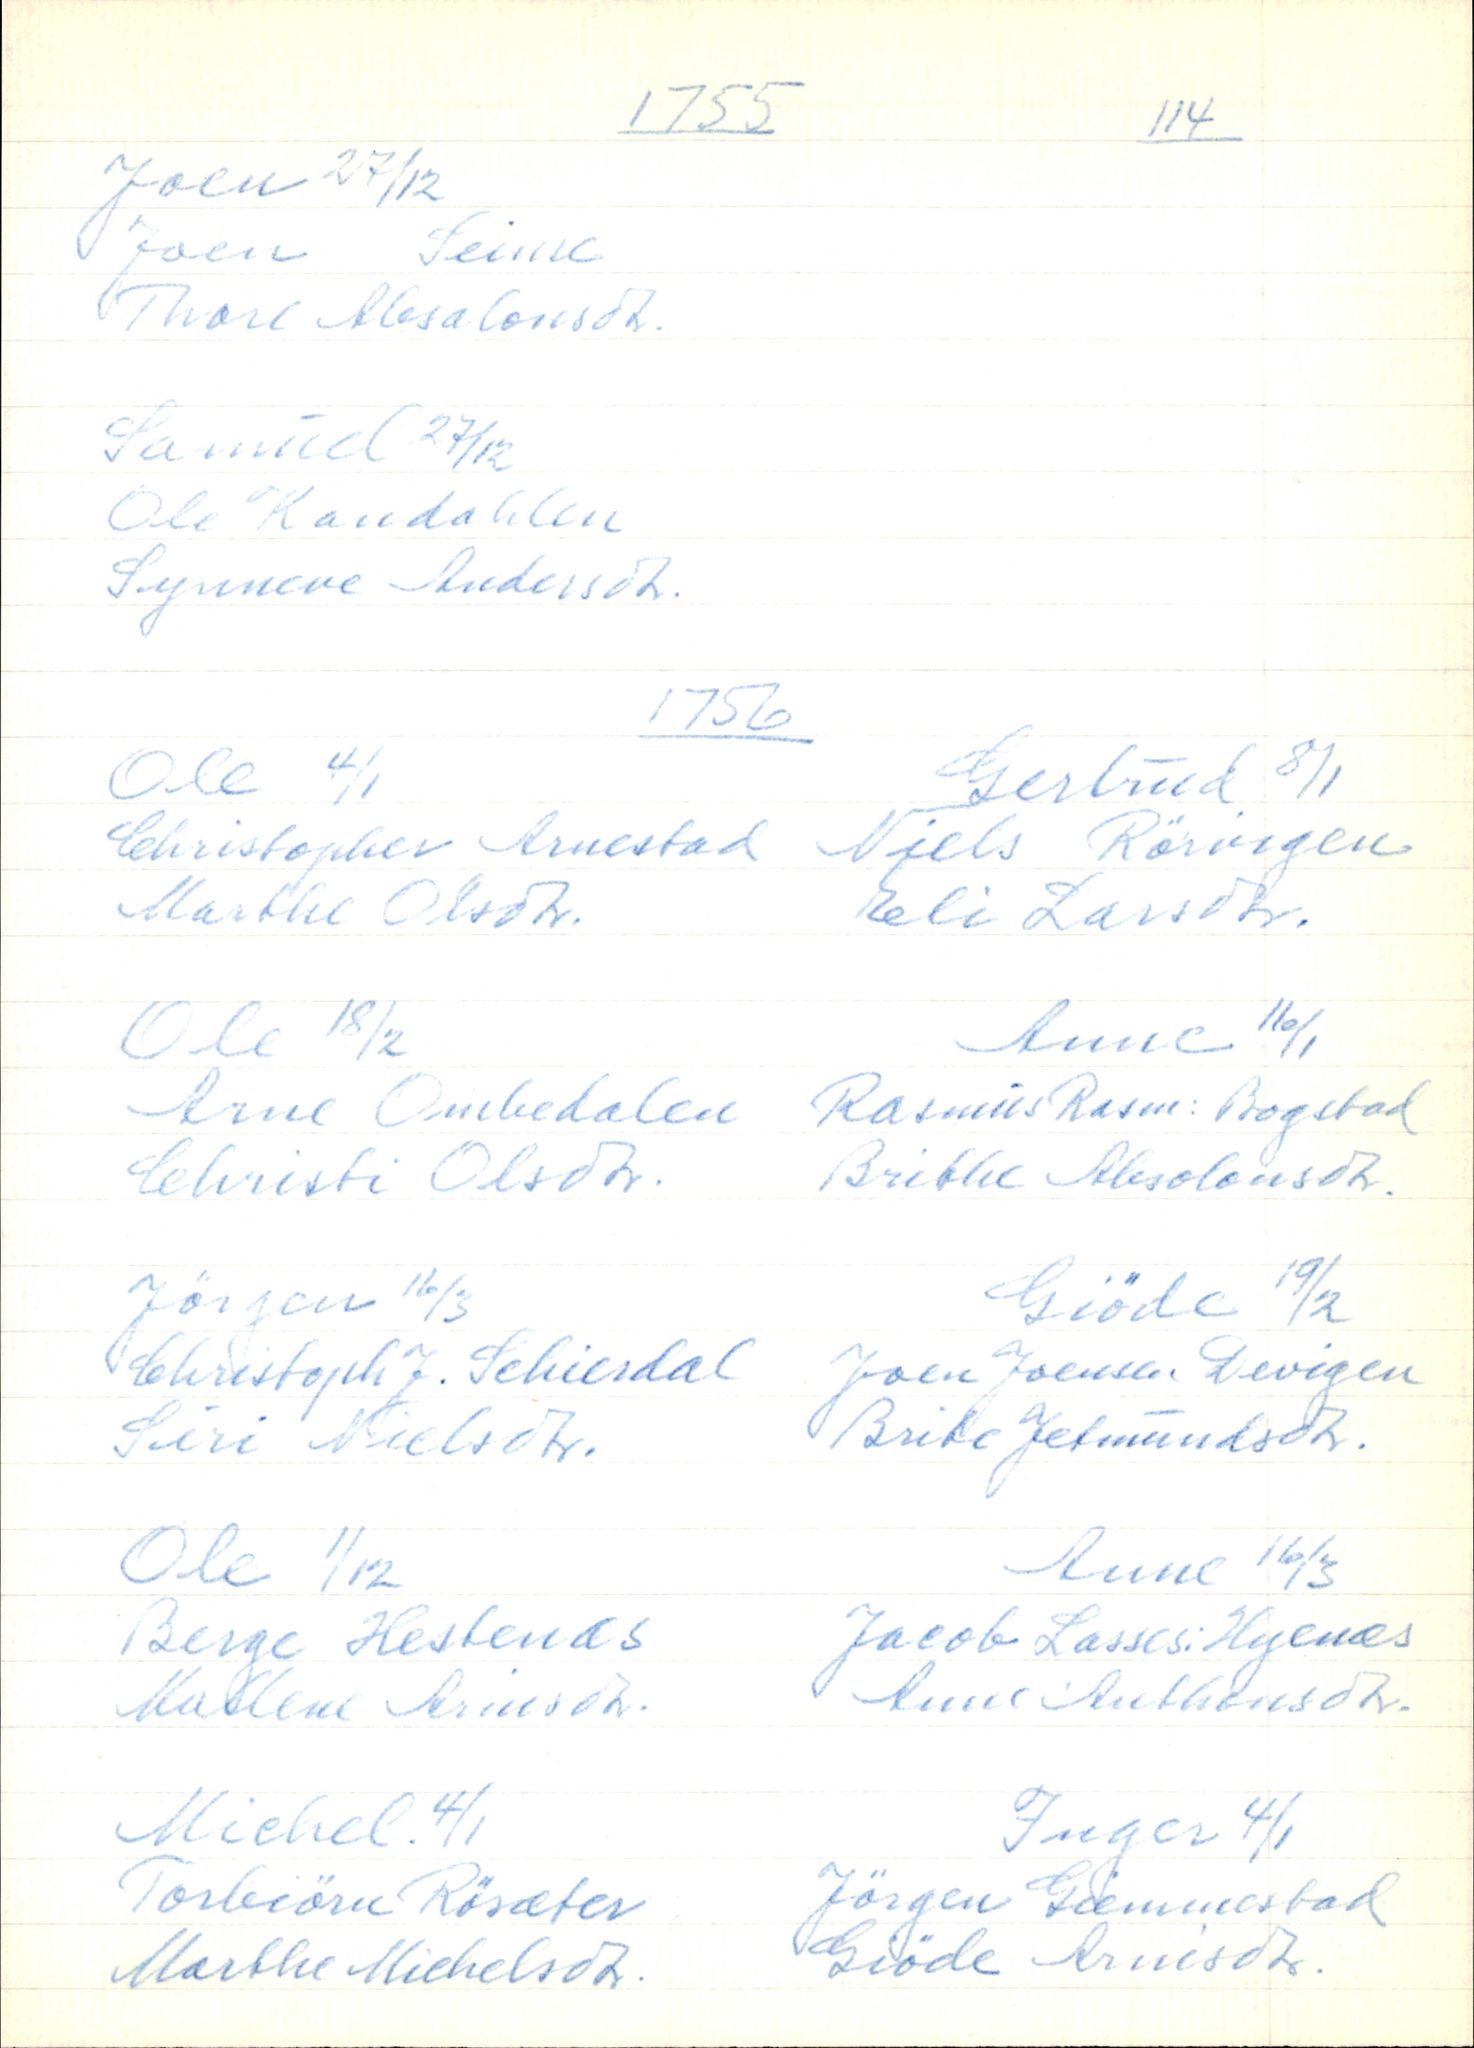 1755 114
Joen 27/12
Joen Seime
Thore Absalonsdtr.
Samŭel 27/12
Ole Kandahlen
Synneve Andersdtr.
1756
Ole 4/1
Christopher Arnestad
Marthe Olsdtr.
Gertrŭd 8/1
Niels Röringen
Eli Larsdtr.
Ole 18/2
Arne Ombedalen
Christi Olsdtr.
Anne 16/1
Rasmŭs Rasm: Bogstad
Brithe Absolonsdtr.
Jörgen 16/3
Christoph J. Schierdal
Siri Nielsdtr.
Giöde 19/2
Joen Joensen Devigen
Brite Jetmŭndsdtr.
Ole 1/12
Berge Hestenæs
Madlene Arnisdtr.
Anne 16/3
Jacob Lasses: Hyenæs
Anne Anthonsdtr.
Michel. 4/1
Torbiörn Rösæter
Marthe Michelsdtr.
Inger 4/1
Jörgen Giemmestad
Giöde Arnisdtr.